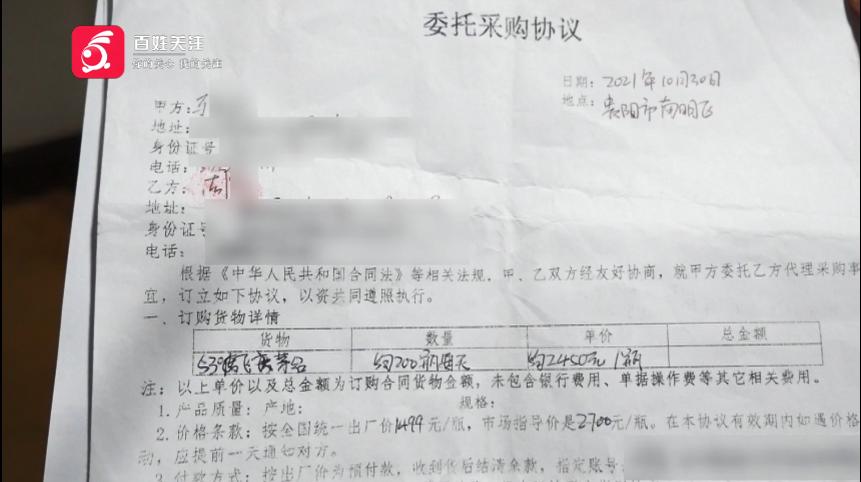 百姓关注
你的关心 我的关注
委托采购协议
日期：2021年10月30日
地点：贵阳市南明区
甲方：
地址：
身份证号
电话：
乙方：
地址：
身份证号
电话：
根据《中华人民共和国合同法》等相关法规，甲、乙双方经友好协商，就甲方委托乙方代理采购事
宜，订立如下协议，以资共同遵照执行。
一、订购货物详情
货物 数量 单价 总金额
53°飞天茅台 约200瓶每天 约2450元/瓶
注：以上单价以及总金额为订购合同货物金额，未包含银行费用、单据操作费等其它相关费用。
1. 产品质量：产地： 规格：
2. 价格条款：按全国统一出厂价1499元/瓶，市场指导价是2700元/瓶。在本协议有效期内如遇价格
动，应提前一天通知对方。
3. 付款方式：按出厂价为预付款，收到货后结清余款，指定账号：